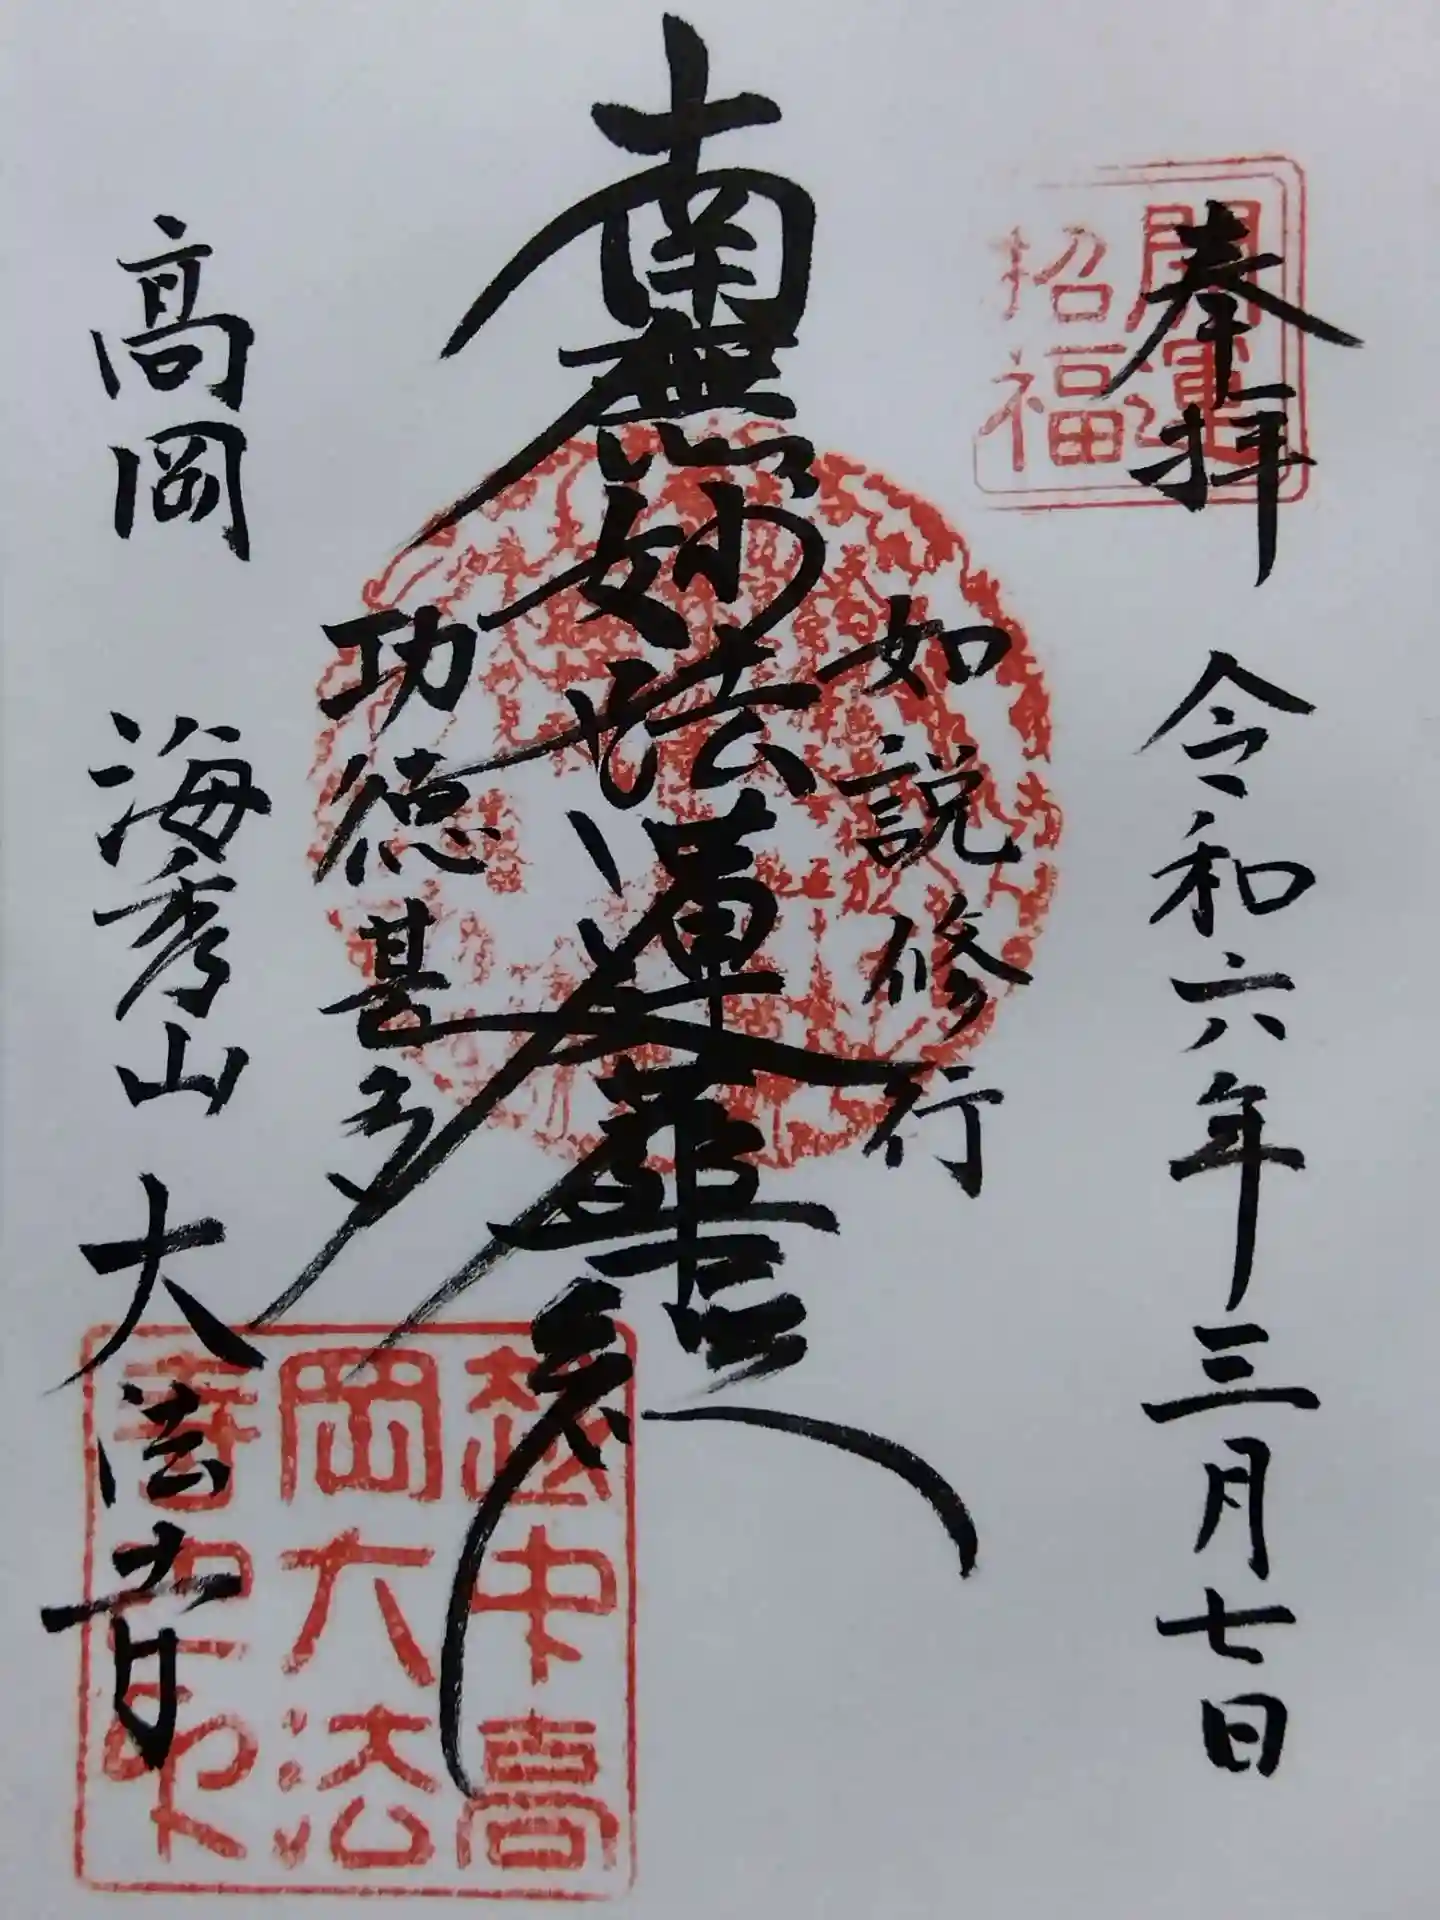 奉拝 令和六年三月七日
開運
招福
如説修行
南無妙法蓮華経
功徳甚多
高岡 海秀山 大法寺
越中高
岡大法
寺之印